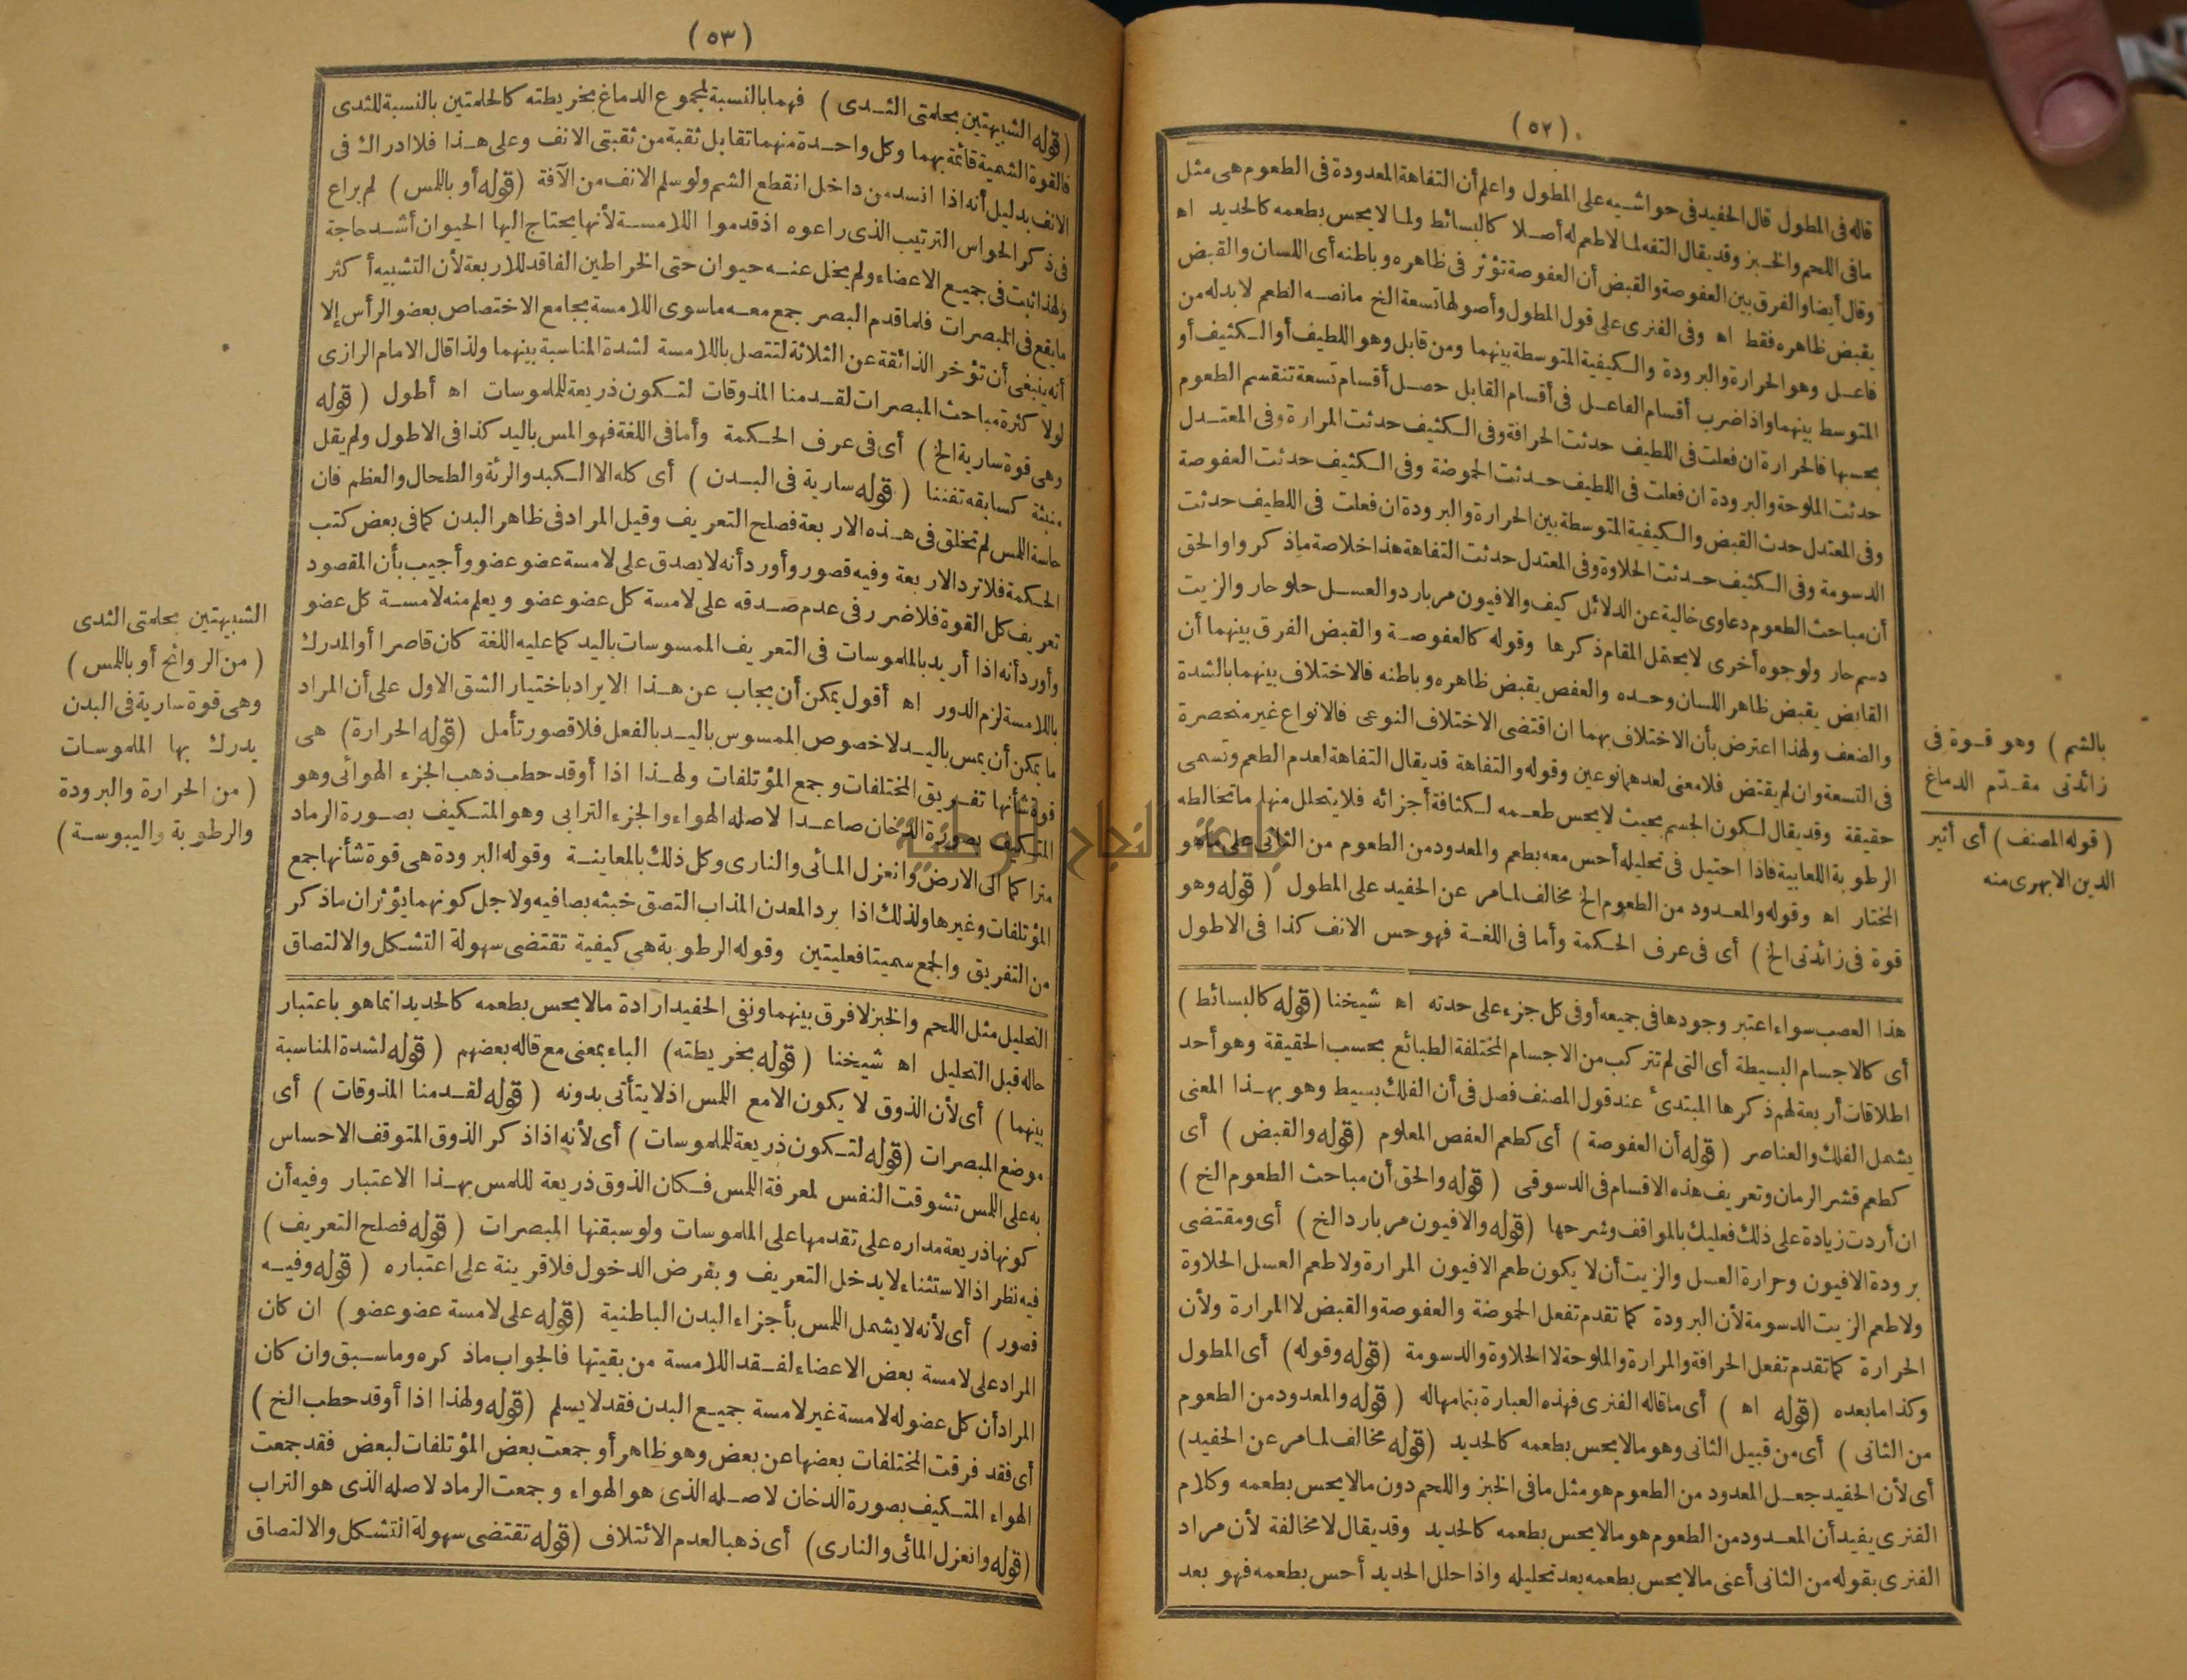 (٥٢)
قاله فى المطول قال الحفيد فى حواشيه على المطول واعلم أن التفاهة المعدودة فى الطعوم هى مثل
ما فى اللحم والخبز وقد يقال التفه لما لا طعم له أصلا كالبسائط ولما لا يحس بطعمه كالحديد اه
وقال أيضا والفرق بين العفوصة والقبض أن العفوصة تؤثر فى ظاهره وباطنه أى اللسان والقبض
يقبض ظاهره فقط اه وفى الفنرى على قول المطول وأصولها تسعة الخ ما نصه الطعم لا بد له من
فاعل وهو الحرارة والبرودة والكيفية المتوسطة بينهما ومن قابل وهو اللطيف أو الكثيف أو
المتوسط بينهما واذا ضرب أقسام الفاعل فى أقسام القابل حصل أقسام تسعة تنقسم الطعوم
بحسبها فالحرارة ان فعلت فى اللطيف حدثت الحرافة وفى الكثيف حدثت المرارة وفى المعتدل
حدثت الملوحة والبرودة ان فعلت فى اللطيف حدثت الحموضة وفى الكثيف حدثت العفوصة
وفى المعتدل حدث القبض والكيفية المتوسطة بين الحرارة والبرودة ان فعلت فى اللطيف حدثت
الدسومة وفى الكثيف حدثت الحلاوة وفى المعتدل حدثت التفاهة هذا خلاصة ما ذكروا والحق
أن مباحث الطعوم دعاوى خالية عن الدلائل كيف والافيون مر بارد والعسل حلو حار والزيت
دسم حار ولوجوه أخرى لا يحتمل المقام ذكرها وقوله كالعفوصة والقبض الفرق بينهما أن
القابض يقبض ظاهر اللسان وحده والعفص يقبض ظاهره وباطنه فالاختلاف بينهما بالشدة
والضعف ولهذا اعترض بأن الاختلاف بهما ان اقتضى الاختلاف النوعى فالانواع غير منحصرة
فى التسعة وان لم يقتض فلا معنى لعدهما نوعين وقوله والتفاهة قد يقال التفاهة لعدم الطعم وتسمى
حقيقة وقد يقال لكون الجسم بحيث لا يحس طعمه لكثافة أجزائه فلا يتحلل منها ما تخالطه
الرطوبة اللعابية فاذا احتيل فى تحليله أحس معه بطعم والمعدود من الطعوم من الثانى على ما هو
المختار اه وقوله والمعدود من الطعوم الخ مخالف لما مر عن الحفيد على المطول (قوله وهو
قوة فى زائدتى الخ) أى فى عرف الحكمة وأما فى اللغة فهو حس الانف كذا فى الاطول
هذا العصب سواء اعتبر وجودها فى جميعه أو فى كل جزء على حدته اه شيخنا (قوله كالبسائط)
أى كالاجسام البسيطة أى التى لم تتركب من الاجسام المختلفة الطبائع بحسب الحقيقة وهو أحد
اطلاقات أربعة لهم ذكرها المبتدئ عند قول المصنف فصل فى أن الفلك بسيط وهو بهذا المعنى
يشمل الفلك والعناصر (قوله أن العفوصة) أى كطعم العفص المعلوم (قوله والقبض) أى
كطعم قشر الرمان وتعريف هذه الاقسام فى الدسوقى (قوله والحق أن مباحث الطعوم الخ)
ان أردت زيادة على ذلك فعليك بالمواقف وشرحها (قوله والافيون مر بارد الخ) أى ومقتضى
برودة الافيون وحرارة العسل والزيت أن لا يكون طعم الافيون المرارة ولا طعم العسل الحلاوة
ولا طعم الزيت الدسومة لأن البرودة كما تقدم تفعل الحموضة والعفوصة والقبض لا المرارة ولأن
الحرارة كما تقدم تفعل الحرافة والمرارة والملوحة لا الحلاوة والدسومة (قوله وقوله) أى المطول
وكذا ما بعده (قوله اه) أى ما قاله الفنرى فهذه العبارة بتمامها له (قوله والمعدود من الطعوم
من الثانى) أى من قبيل الثانى وهو ما لا يحس بطعمه كالحديد (قوله مخالف لما مر عن الحفيد)
أى لأن الحفيد جعل المعدود من الطعوم هو مثل ما فى الخبز واللحم دون ما لا يحس بطعمه وكلام
الفنرى يفيد أن المعدود من الطعوم هو ما لا يحس بطعمه كالحديد وقد يقال لا مخالفة لأن مراد
الفنرى بقوله من الثانى أعنى ما لا يحس بطعمه بعد تحليله واذا حلل الحديد أحس بطعمه فهو بعد
بالشم) وهو قوة فى
زائدتى مقدّم الدماغ
(قوله المصنف) أى أثير
الدين الابهرى منه
(٥٣)
(قوله الشبيهتين بحلمتى الثدى) فهما بالنسبة لمجموع الدماغ بخريطته كالحلمتين بالنسبة للثدى
فالقوة الشمية قائمة بهما وكل واحدة منهما تقابل ثقبة من ثقبتى الانف وعلى هذا فلا ادراك فى
الانف بدليل أنه اذا انسد من داخل انقطع الشم ولو سلم الانف من الآفة (قوله أو باللمس) لم يراع
فى ذكر الحواس الترتيب الذى راعوه اذ قدموا اللامسة لأنها يحتاج اليها الحيوان أشد حاجة
ولهذا ثبت فى جميع الاعضاء ولم يخل عنه حيوان حتى الخراطين الفاقد للاربعة لأن التشبيه أكثر
ما يقع فى المبصرات فلما قدم البصر جمع معه ما سوى اللامسة بجامع الاختصاص بعضو الرأس إلا
أنه ينبغى أن تؤخر الذائقة عن الثلاثة لتتصل باللامسة لشدة المناسبة بينهما ولذا قال الامام الرازى
لولا كثرة مباحث المبصرات لقدمنا المذوقات لتكون ذريعة للملموسات اه أطول (قوله
وهى قوة سارية الخ) أى فى عرف الحكمة وأما فى اللغة فهو المس باليد كذا فى الاطول ولم يقل
منبثة كسابقه تفننا (قوله سارية فى البدن) أى كله الا الكبد والرئة والطحال والعظم فان
حاسة اللمس لم تخلق فى هذه الاربعة فصلح التعريف وقيل المراد فى ظاهر البدن كما فى بعض كتب
الحكمة فلا ترد الاربعة وفيه قصور وأورد أنه لا يصدق على لامسة عضو عضو وأجيب بأن المقصود
تعريف كل القوة فلا ضرر فى عدم صدقه على لامسة كل عضو عضو ويعلم منه لامسة كل عضو
وأورد أنه اذا أريد بالملموسات فى التعريف الممسوسات باليد كما عليه اللغة كان قاصرا أو المدرك
باللامسة لزم الدور اه أقول يمكن أن يجاب عن هذا الايراد باختيار الشق الاول على أن المراد
ما يمكن أن يمس باليد لا خصوص الممسوس باليد بالفعل فلا قصور تأمل (قوله الحرارة) هى
قوة شأنها تفريق المختلفات وجمع المؤتلفات ولهذا اذا أوقد حطب ذهب الجزء الهوائى وهو
المتكيف بصورة الدخان صاعدا لاصله الهواء والجزء الترابى وهو المتكيف بصورة الرماد
متراكما الى الارض وانعزل المائى والنارى وكل ذلك بالمعاينة وقوله البرودة هى قوة شأنها جمع
المؤتلفات وغيرها ولذلك اذا برد المعدن المذاب التصق خبثه بصافيه ولاجل كونهما يؤثران ما ذكر
من التفريق والجمع سميتا فعليتين وقوله الرطوبة هى كيفية تقتضى سهولة التشكل والالتصاق
التحليل مثل اللحم والخبز لا فرق بينهما ونفى الحفيد ارادة ما لا يحس بطعمه كالحديد انما هو باعتبار
حاله قبل التحليل اه شيخنا (قوله بخريطته) الباء بمعنى مع قاله بعضهم (قوله لشدة المناسبة
بينهما) أى لأن الذوق لا يكون الا مع اللمس اذ لا يتأتى بدونه (قوله لقدمنا المذوقات) أى
موضع المبصرات (قوله لتكون ذريعة للملموسات) أى لأنه اذا ذكر الذوق المتوقف الاحساس
به على اللمس تشوقت النفس لمعرفة اللمس فكان الذوق ذريعة للمس بهذا الاعتبار وفيه أن
كونها ذريعة مداره على تقدمها على الملموسات ولو سبقتها المبصرات (قوله فصلح التعريف)
فيه نظر اذ الاستثناء لا يدخل التعريف وبفرض الدخول فلا قرينة على اعتباره (قوله وفيه
قصور) أى لأنه لا يشمل اللمس بأجزاء البدن الباطنية (قوله على لامسة عضو عضو) ان كان
المراد على لامسة بعض الاعضاء لفقد اللامسة من بقيتها فالجواب ما ذكره وما سبق وان كان
المراد أن كل عضو له لامسة غير لامسة جميع البدن فقد لا يسلم (قوله ولهذا اذا أوقد حطب الخ)
أى فقد فرقت المختلفات بعضها عن بعض وهو ظاهر أو جمعت بعض المؤتلفات لبعض فقد جمعت
الهواء المتكيف بصورة الدخان لاصله الذى هو الهواء وجمعت الرماد لاصله الذى هو التراب
(قوله وانعزل المائى والنارى) أى ذهبا لعدم الائتلاف (قوله تقتضى سهولة التشكل والالتصاق
الشبيهتين بحلمتى الثدى
(من الروائح أو باللمس)
وهى قوة سارية فى البدن
يدرك بها الملموسات
(من الحرارة والبرودة
والرطوبة واليبوسة)
جامعة النجاح الوطنية